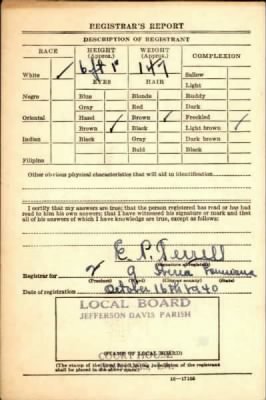 REGISTRAR'S REPORT
DESCRIPTION OF REGISTRANT
RACE HEIGHT (Approx.) WEIGHT (Approx.) COMPLEXION
White ✓ 6 ft 1 147 Sallow
EYES HAIR Light
Negro Blue Blonde Ruddy
Gray Red Dark
Oriental Hazel Brown ✓ Freckled
Brown ✓ Black Light brown ✓
Indian Black Gray Dark brown
Bald Black
Filipino
Other obvious physical characteristics that will aid in identification
I certify that my answers are true; that the person registered has read or has had
read to him his own answers; that I have witnessed his signature or mark and that
all of his answers of which I have knowledge are true, except as follows:
E. P. Terrell
(Signature of registrar)
Registrar for 2 9 Louisiana
(Precinct) (Ward) (City or county) (State)
Date of registration October 16th 1940
LOCAL BOARD
JEFFERSON DAVIS PARISH
COURT HOUSE
(STAMP OF LOCAL BOARD)
(The stamp of the Local Board having jurisdiction of the registrant
shall be placed in the above space)
16—17105